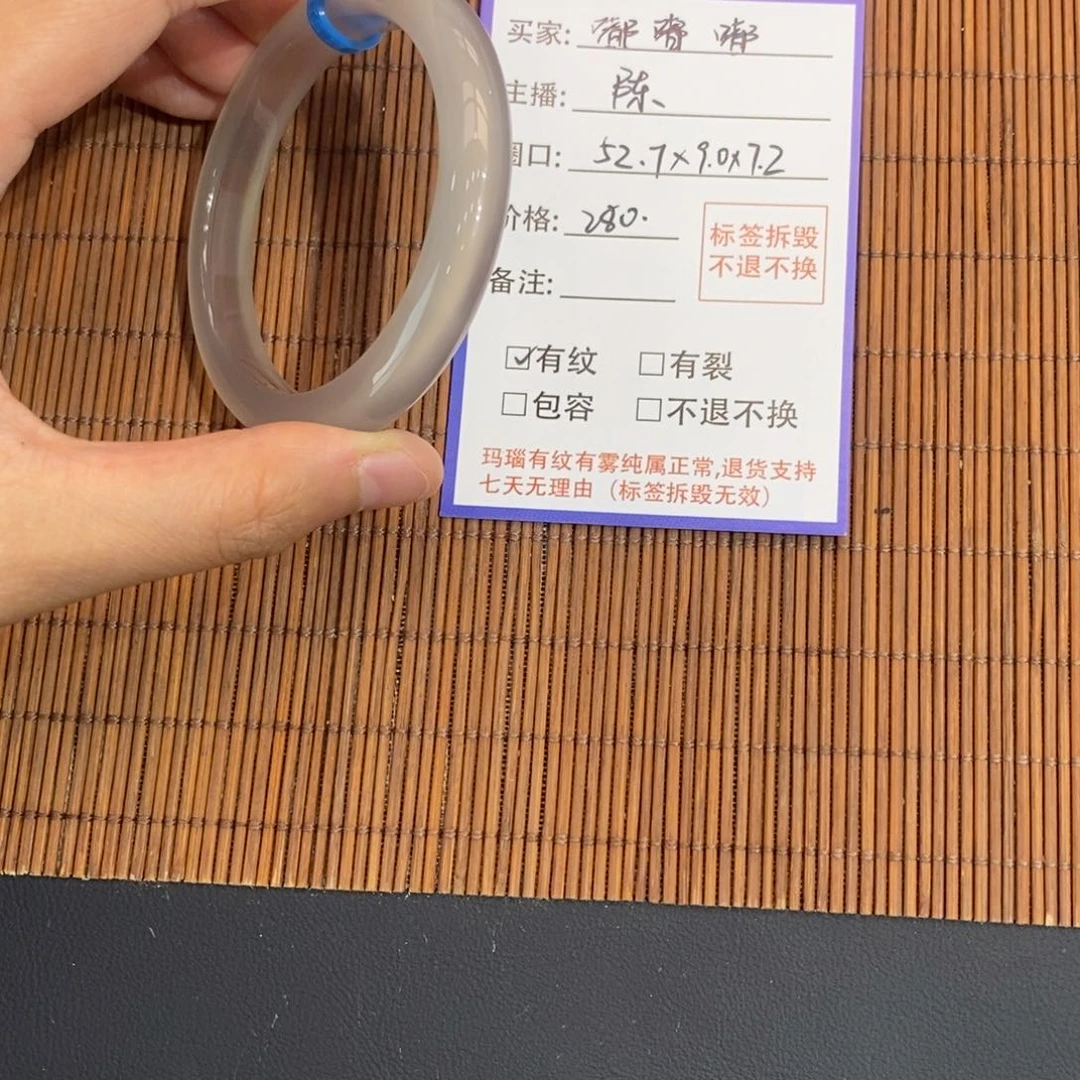 买家: 嘟嘟嘟
主播: 陈
圈口: 52.7×9.0×7.2
价格: 280.
标签拆毁
不退不换
备注:
☑有纹 □有裂
□包容 □不退不换
玛瑙有纹有雾纯属正常,退货支持
七天无理由（标签拆毁无效）